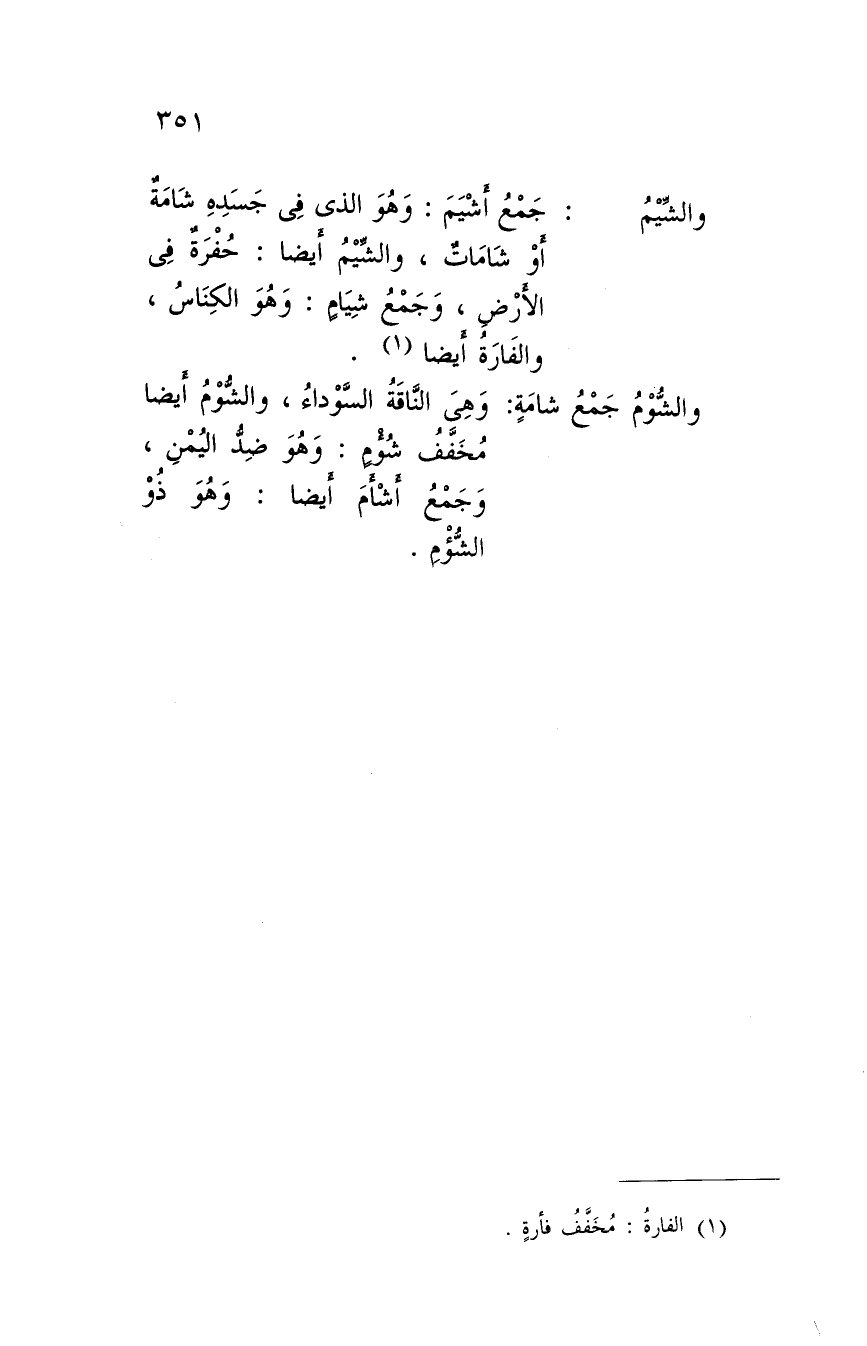 ٣٥١
والشِّيْمُ : جَمْعُ أَشْيَمَ : وَهُوَ الذى فِى جَسَدِهِ شَامَةٌ
أَوْ شَامَاتٌ ، والشِّيْمُ أَيضا : حُفْرَةٌ فِى
الأَرْضِ ، وَجَمْعُ شِيَامٍ : وَهُوَ الكِنَاسُ ،
والفَارَةُ أَيضا (١) .
والشُّوْمُ جَمْعُ شامَةٍ: وَهِىَ النَّاقَةُ السَّوْداءُ ، والشُّوْمُ أَيضا
مُخَفَّفُ شُؤْمٍ : وَهُوَ ضِدُّ اليُمْنِ ،
وَجَمْعُ أَشْأَمَ أَيضا : وَهُوَ ذُوْ
الشُّؤْمِ .
(١) الفارةُ : مُخَفَّفُ فأرةٍ .